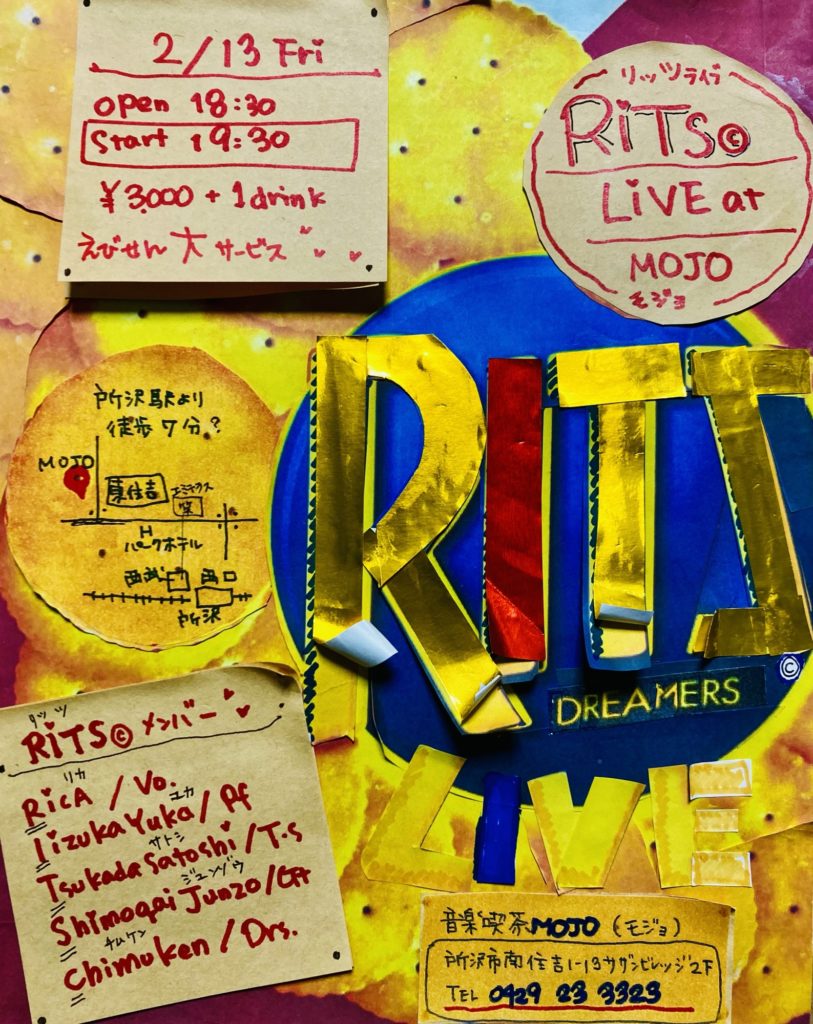 2/13 Fri
open 18:30
Start 19:30
¥3,000 + 1drink
えびせん 大 サービス
リッツライブ
RiTS©
LiVE at
MOJO
モジョ
所沢駅より
徒歩7分?
MOJO
東住吉
エミテラス
H
パークホテル
西武
西口
所沢
RITS
©
DREAMERS
LIVE
リッツ
RiTS© メンバー
リカ
RicA / Vo.
ユカ
Iizuka Yuka / Pf
サトシ
Tsukada Satoshi / T.S
ジュンゾウ
Shimogai Junzo / Gt
チムケン
Chimuken / Drs.
音楽喫茶MOJO (モジョ)
所沢市南住吉1-18サザンビレッジ2F
TEL 0429 23 3323